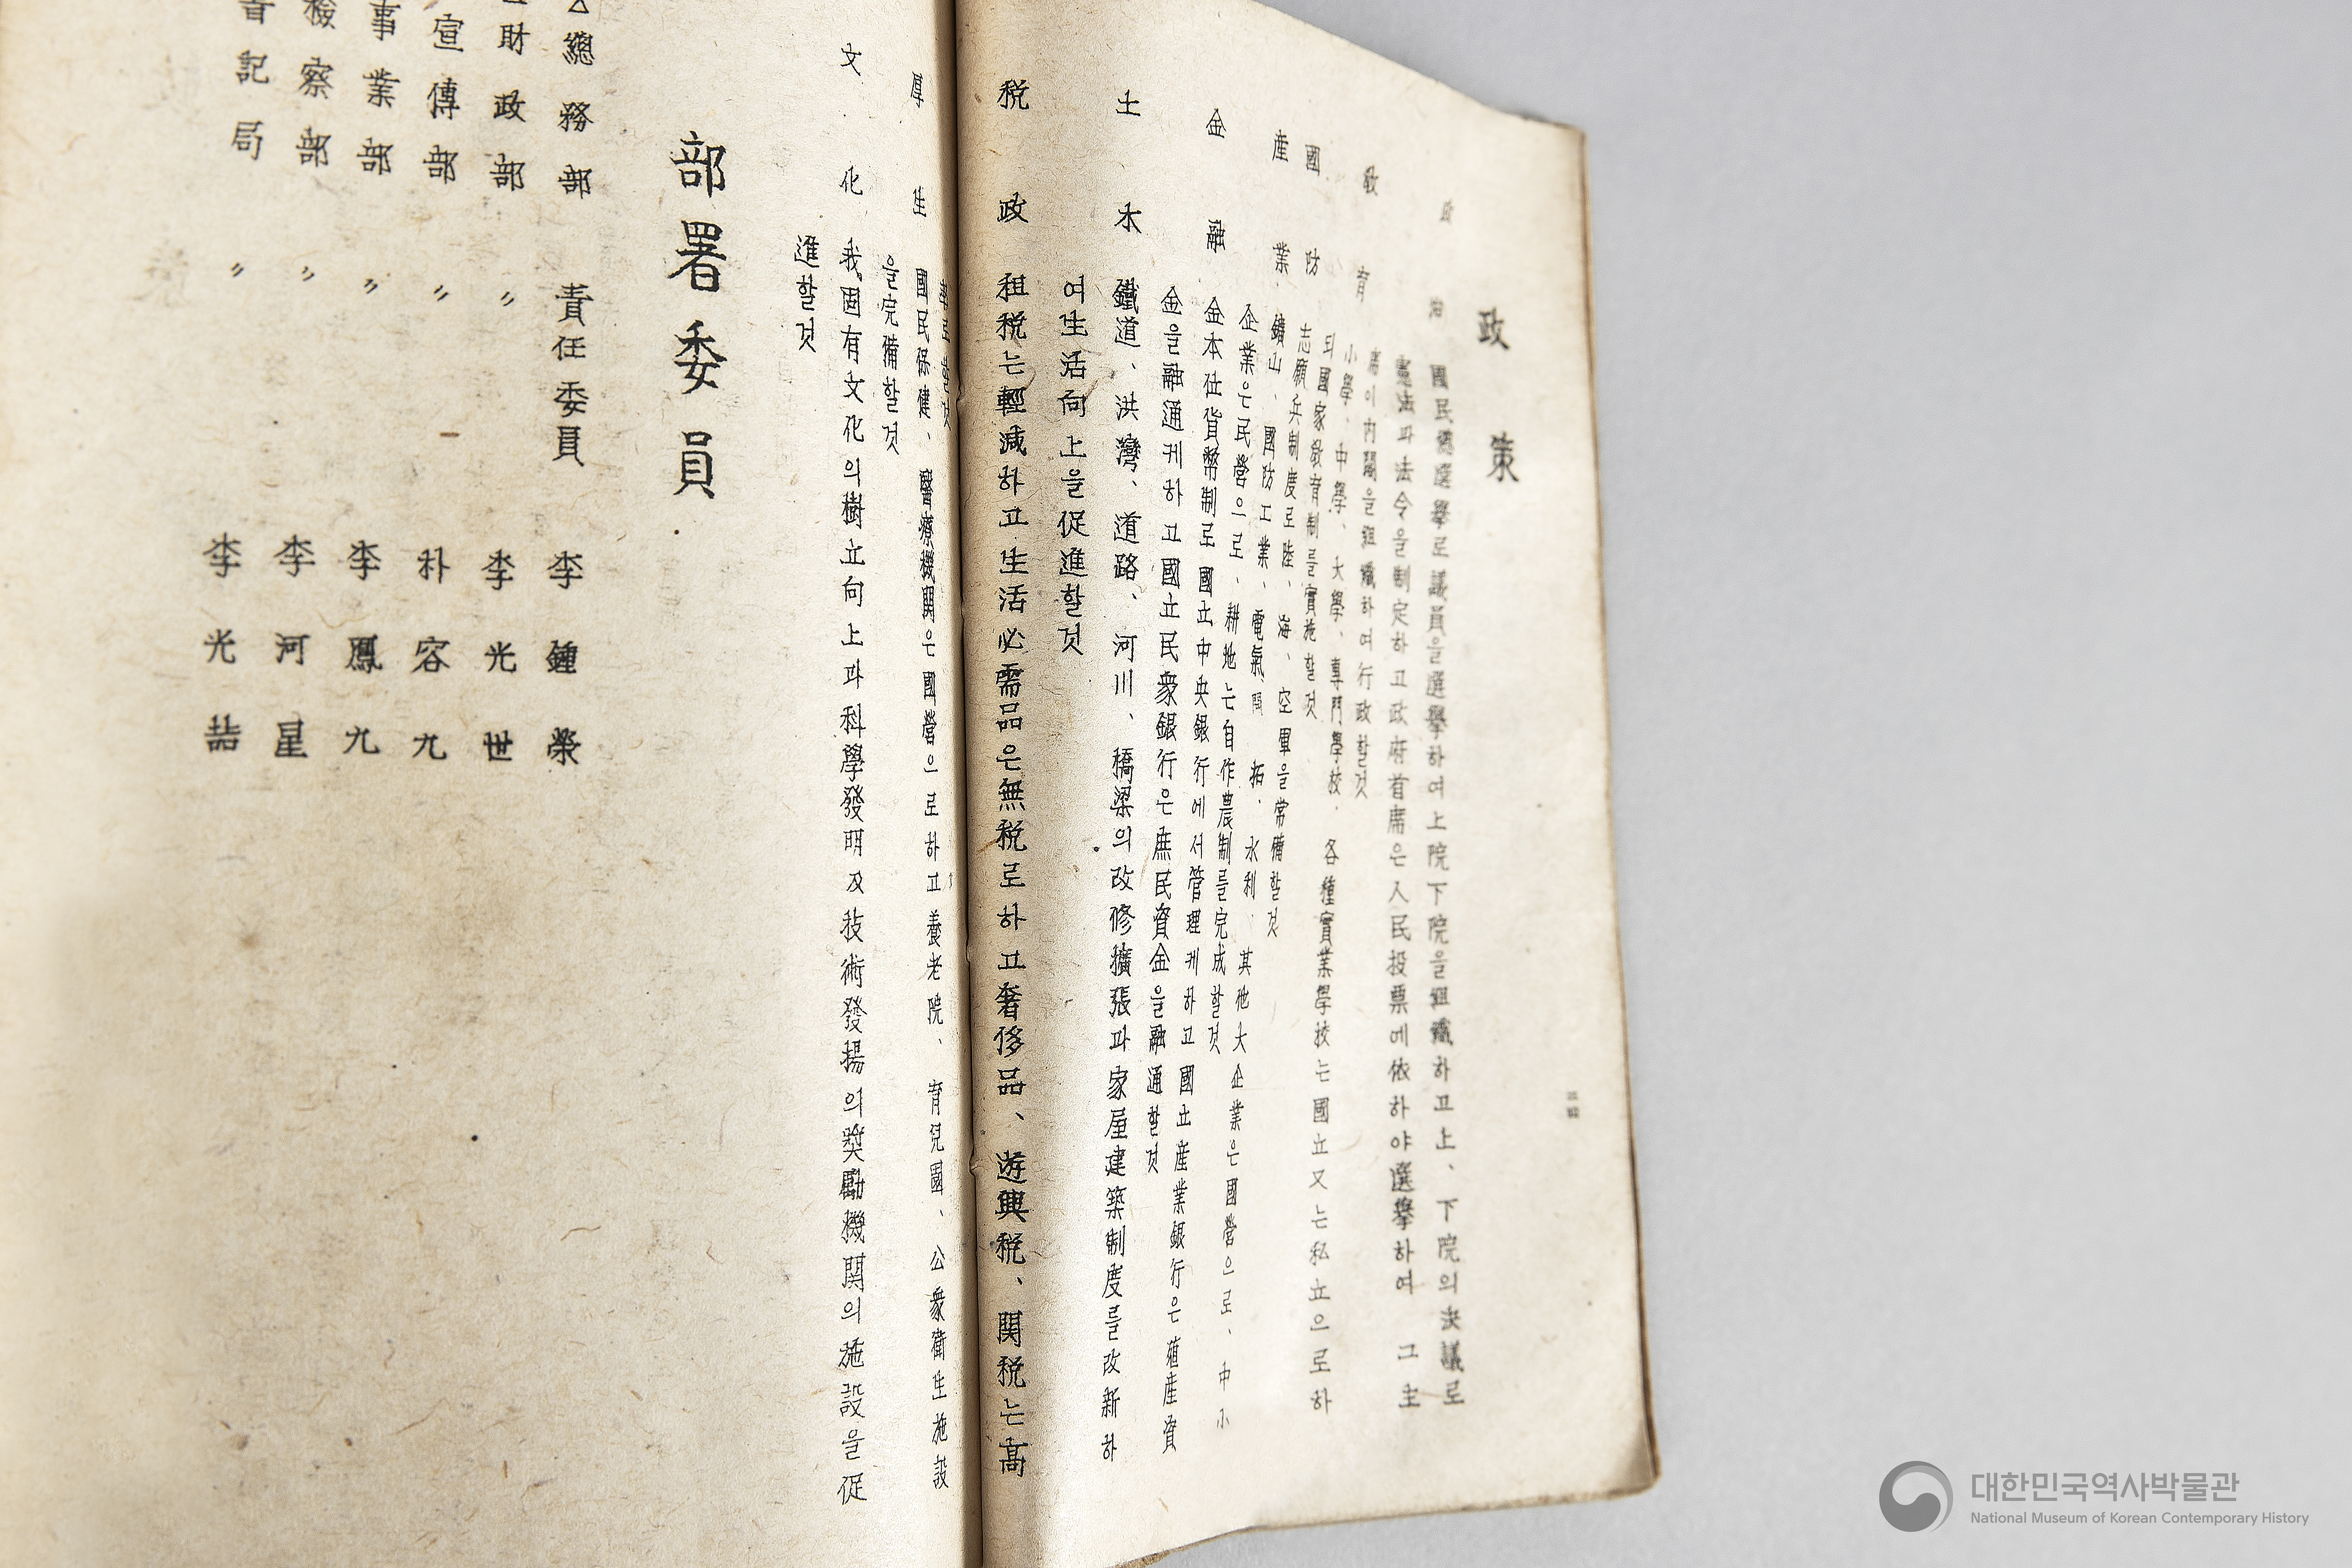 政策
政治 國民總選擧로議員을選擧하여上院下院을組織하고上、下院의決議로
憲法과法令을制定하고政府首席은人民投票에依하야選擧하여 그主
席이內閣을組織하여行政할것
敎育 小學、中學、大學、專門學校、各種實業學校는國立又는私立으로하
되國家敎育制를實施할것
國防 志願兵制度로陸、海、空軍을常備할것
産業 鑛山、國防工業、電氣、開拓、水利、其他大企業은國營으로、中小
企業은民營으로、耕地는自作農制를完成할것
金融 金本位貨幣制로國立中央銀行에서管理케하고國立産業銀行은殖産資
金을融通케하고國立民衆銀行은庶民資金을融通할것
土木 鐵道、洪灣、道路、河川、橋梁의改修擴張과家屋建築制度를改新하
여生活向上을促進할것
税政 租税는輕減하고生活必需品은無税로하고奢侈品、遊興税、関税는高
厚生 國民保健、醫療機関은國營으로하고養老院、育兒園、公衆衛生施設
을完備할것
文化 我固有文化의樹立向上과科學發明及技術發揚의奬勵機関의施設을促
進할것
部署委員
總務部 責任委員 李鍾榮
財政部 〃 李光世
宣傳部 〃 朴容九
事業部 〃 李鳳九
檢察部 〃 李河星
書記局 〃 李光喆
대한민국역사박물관
National Museum of Korean Contemporary History